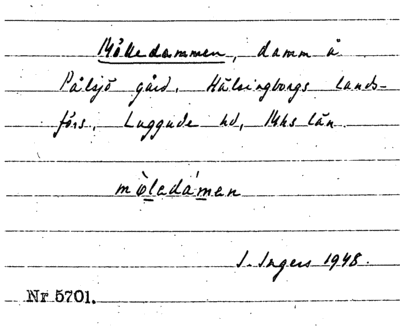 Mölledammen, damm å
Pålsjö gård, Hälsingborgs lands-
förs., Luggude hd, Mhs län.
möledámen
I. Ingers 1948.
Nr 5701.